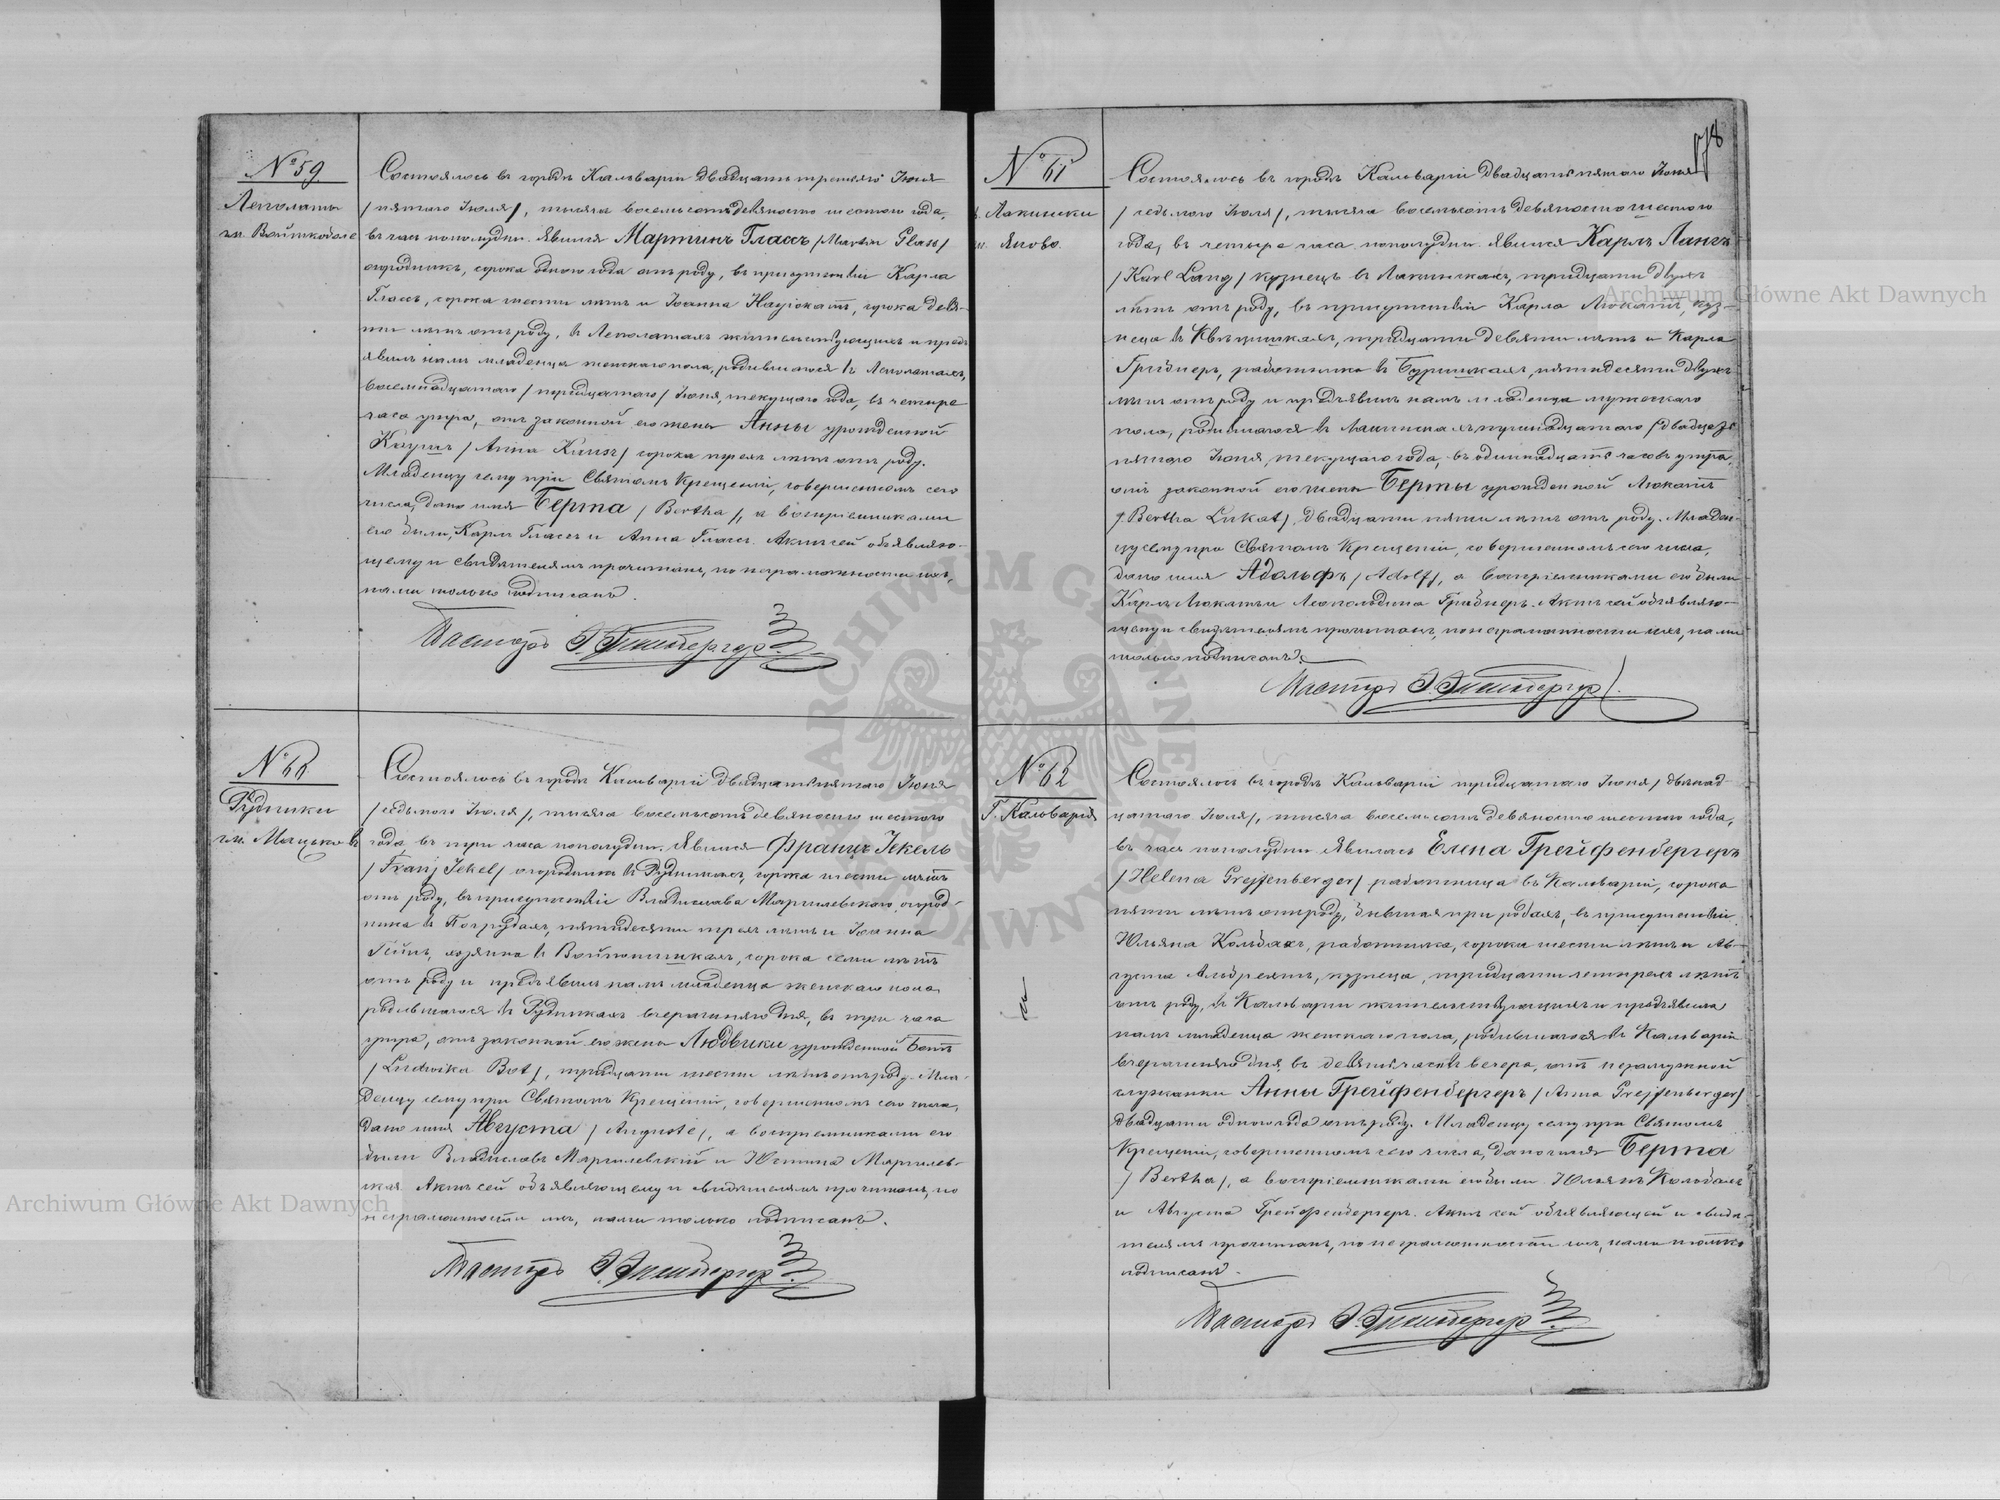 № 59
Леполаты
гм. Войткоболе
Состоялось въ городѣ Кальваріи двадцать третьяго Іюня
/пятаго Іюля/, тысяча восемьсотъ девяносто шестого года,
въ часъ пополудни. Явился Мартинъ Глассъ /Martin Glass/
огородникъ, сорока одного года отъ роду, въ присутствіи Карла
Глассъ, сорока шести лѣтъ и Іоанна, сорока девя-
ти лѣтъ отъ роду, въ Леполатахъ жительствующихъ и предъ
явилъ намъ младенца женскаго пола, родившагося въ Леполатахъ,
восемнадцатаго /тридцатаго/ Іюня, текущаго года, въ четыре
часа утра, отъ законной его жены Анны урожденной
Каунъ /Anna Kauns/ сорока трехъ лѣтъ отъ роду.
Младенцу сему при Святомъ Крещеніи, совершенномъ сего
числа, дано имя Берта /Bertha/, а воспріемниками
его были, Карлъ Глассъ и Анна Глассъ. Актъ сей объявляю-
щему и свидѣтелямъ прочитанъ, по неграмотности ихъ,
нами только подписанъ.
Пасторъ
№ 60
Рудники
гм. Мацьково
Состоялось въ городѣ Кальваріи двадцать пятаго Іюня
/седьмого Іюля/, тысяча восемьсотъ девяносто шестого
года, въ три часа пополудни. Явился Францъ Іекель
/Franz Jekel/ огородникъ въ Рудникахъ, сорока шести лѣтъ
отъ роду, въ присутствіи Владислава Маргилевскаго огород-
ника въ Погрудахъ, пятидесяти трехъ лѣтъ и Іоанна
Гейнъ, хозяина въ, сорока семи лѣтъ
отъ роду и предъявилъ намъ младенца женскаго пола
родившагося въ Рудникахъ вчерашняго дня, въ три часа
утра, отъ законной его жены Людвики урожденной Ботъ
/Ludwika Bot/, тридцати шести лѣтъ отъ роду. Мла-
денцу сему при Святомъ Крещеніи, совершенномъ сего числа,
дано имя Августа /Auguste/, а воспріемниками его
были Владиславъ Маргилевскій и Юстина Маргилев-
ская. Актъ сей объявляющему и свидѣтелямъ прочитанъ, по
неграмотности ихъ, нами только подписанъ.
Пасторъ
578
№ 61
д. Лакински
гм. Яново.
Состоялось въ городѣ Кальваріи двадцать пятаго Іюня
/седьмого Іюля/, тысяча восемьсотъ девяносто шестого
года, въ четыре часа пополудни. Явился Карлъ Лангъ
/Karl Lang/ кузнецъ въ Лакинскахъ, тридцати двухъ
лѣтъ отъ роду, въ присутствіи Карла Люкатъ, куз-
неца въ, тридцати девяти лѣтъ и Карла
Грибнеръ, работника въ, пятидесяти двухъ
лѣтъ отъ роду и предъявилъ намъ младенца мужескаго
пола, родившагося въ Лакинскахъ тринадцатаго /двадцать
пятаго Іюня, текущаго года, въ одиннадцать часовъ утра,
отъ законной его жены Берты урожденной Люкатъ
/Bertha Lukat/ двадцати пяти лѣтъ отъ роду. Младен-
цу сему при Святомъ Крещеніи, совершенномъ сего числа,
дано имя Адольфъ /Adolf/, а воспріемниками его были
Карлъ Люкатъ и Леопольдина Грибнеръ. Актъ сей объявляю-
щему и свидѣтелямъ прочитанъ, по неграмотности ихъ, нами
только подписанъ.
Пасторъ
№ 62
Г. Кальварія
Состоялось въ городѣ Кальваріи тридцатаго Іюня /двѣнад-
цатаго Іюля/, тысяча восемьсотъ девяносто шестого года,
въ часъ пополудни. Явилась Елена Грейфенбергеръ
/Helena Greyfenberger/ работница въ Кальваріи, сорока
пяти лѣтъ отъ роду, бывшая при родахъ, въ присутствіи
Юльяна Кольбахъ, работника, сорока шести лѣтъ и Ав-
густа Альбрехтъ, кузнеца, тридцати четырехъ лѣтъ
отъ роду, въ Кальваріи жительствующихъ и предъявила
намъ младенца женскаго пола, родившагося въ Кальваріи
вчерашняго дня, въ девять часовъ вечера, отъ незамужной
служанки Анны Грейфенбергеръ /Anna Greyfenberger/
двадцати одного года отъ роду. Младенцу сему при Святомъ
Крещеніи, совершенномъ сего числа, дано имя Берта
/Bertha/, а воспріемниками его были Юльянъ Кольбахъ
и Августа Грейфенбергеръ. Актъ сей объявляющей и свидѣ-
телямъ прочитанъ, по неграмотности ихъ, нами только
подписанъ.
Пасторъ
Archiwum Główne Akt Dawnych
Archiwum Główne Akt Dawnych
ARCHIWUM GŁÓWNE AKT DAWNYCH